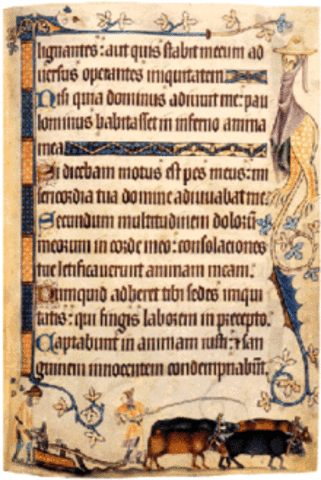 lignantes: aut quis stabit mecum ad
uersus operantes iniquitatem
Nisi quia dominus adiuuit me: pau
lominus habitasset in inferno anima
mea
Si dicebam motus est pes meus: mi
sericordia tua domine adiuuabat me
Secundum multitudinem dolorū
meorum in corde meo: consolaciones
tue letificauerunt animam meam.
Numquid adheret tibi sedes iniqui
tatis: qui fingis laborem in precepto.
Captabunt in animam iusti: & san
guinem innocentem condempnabūt.